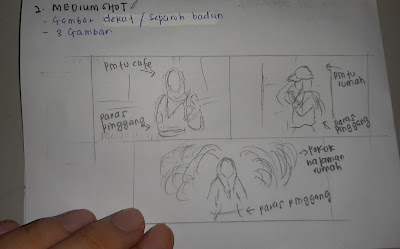 2. MEDIUM SHOT
- Gambar dekat / separuh badan
- 3 Gambar
pintu cafe
paras
pinggang
pintu
rumah
paras
pinggang
pokok
halaman
rumah
paras pinggang